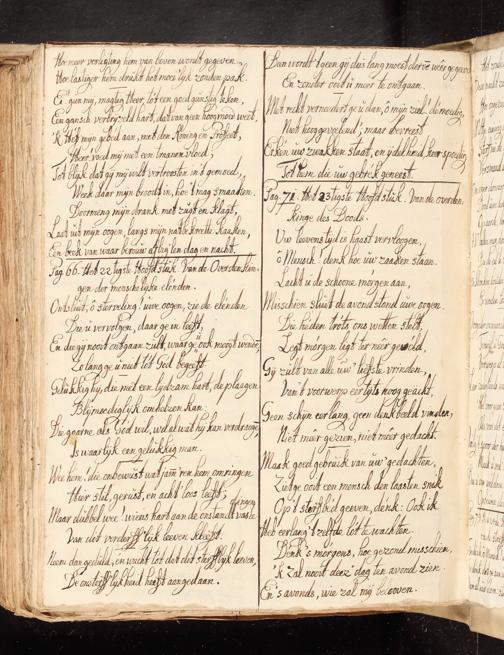 Hoe meer verligting hem van boven wordt gegeven,
Hoe lastiger hem drukt het moeilyk zonden pak.
Ei gun my, magtig Heer, tot een goed gunstig teken,
Een gansch verbryzeld hart, dat van geen hoogmoed weet,
'k Heb myn gebed aan, met den Koning en Profeet,
met eenen tranen vloed,
Tot blyk dat gy my wilt vertroosten in 't gemoed,
Week daar myn brood in, hoe 't mag smaaken.
Doormeng myn drank met zugt en klagt,
Laat uit myn oogen, langs myn nat bekretten kaaken,
Een beek van waar berouw afluijten dag en nacht.
Pag 66. Het 22ste Hoofdstuk. Van de Overdenkin-
gen der menschelyke elenden.
Ontsluit, ô sterveling! uwe oogen, zie de elenden
Die u vervolgen, daar ge in leeft,
En die gy nooit ontgaan zult, waar ge ook moogt wenden,
Zo lang ge u niet tot God begeeft.
Gelukkig hy, die met een lydzaam hart, de plaagen
Blymoediglyk omhelzen kan.
Die gaarne als God wil, wil al wat hy kan verdraagen,
Is waarlyk een gelukkig man.
Wee hem! die onbewust wat jammeren hem omringen
Hier stil, gerust, en achteloos leeft;
Maar dubbel wee! wiens hart aan de onstandvaste dingen
Van dit verderfflyk leeven kleeft.
Neem dan geduld, en wacht tot dat dit sterfflyk leeven,
De onsterfflykheid heeft aangedaan.
Dan wordt 't geen gy dus lang moest derven weêr gegeven
En zonder ooit u meer te ontgaan.
Met recht vernedert ge u dan, ô myn ziel! demoedig,
Niet hooggevoelend, maar bevreest
Erken uw zwakken staat, en ydelheid, keer spoedig
Tot hem die uw gebrek geneest.
Pag. 71. Het 23ste Hoofdstuk. Van de overden-
kinge des Doods.
Uw leevens tyd is haast vervloogen,
ô Mensch! denk hoe uw zaaken staan.
Lacht u de schoone morgen aan,
Misschien sluit de avondstond uwe oogen.
Die heden trots ons wetten stelt,
Legt morgen ligt ter neêr geveld,
Gy zult van alle uw' liefste vrinden,
Van 't voorwerp eertyts hoog geacht,
Geen schyn eerlang, geen denkbeeld vinden,
Niet meêr gezien, niet meêr gedacht.
Maak goed gebruik van uw' gedachten,
Ziet ge ooit een mensch den laasten snak
Op 't sterfbed geeven, denk: Ook ik
Heb eerlang 't zelfde lot te wachten.
Denk 's morgens, hoe gezond misschien,
'k Zal nooit deez' dag ten avond zien.
En 's avonds, wie zal my belooven.